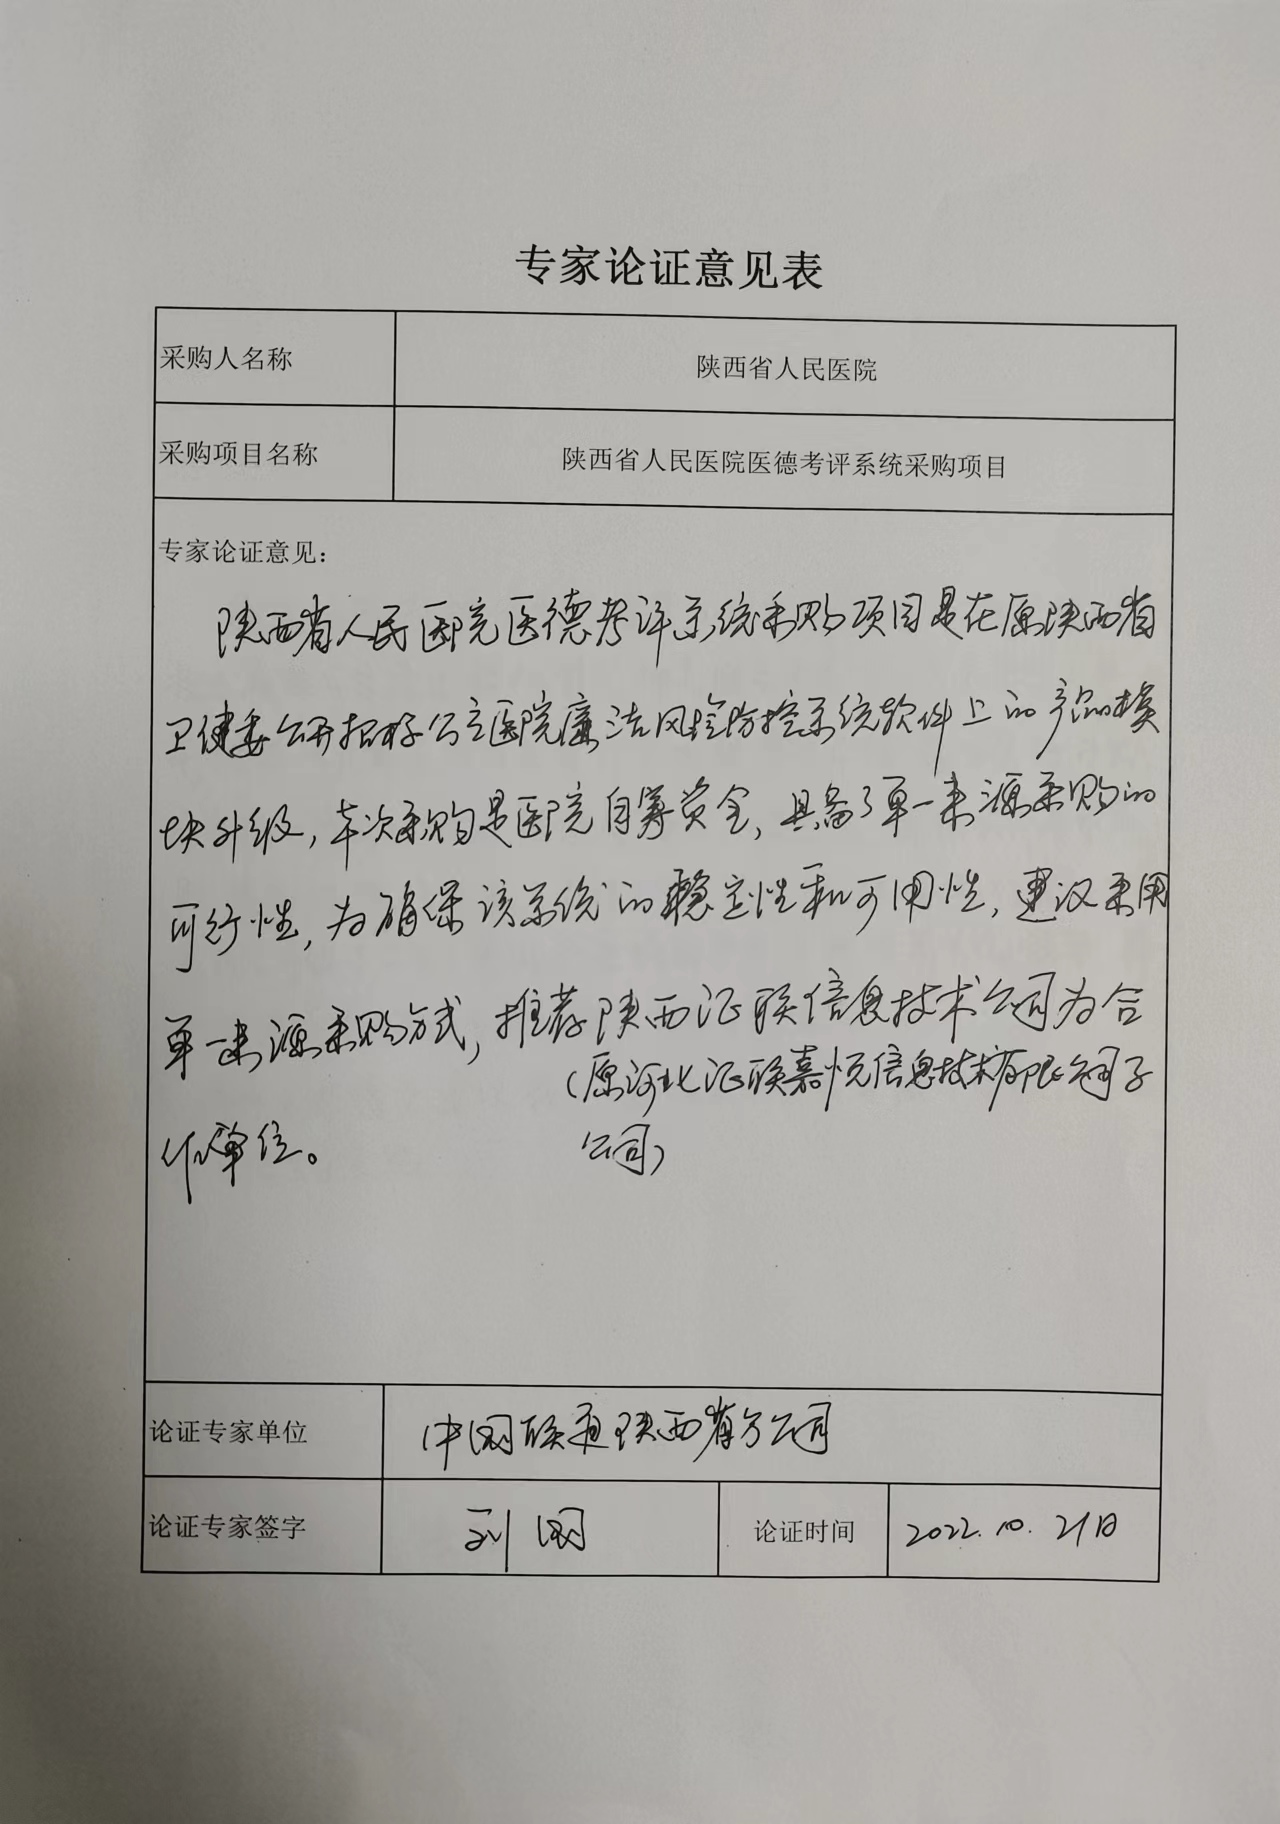 专家论证意见表
采购人名称 陕西省人民医院
采购项目名称 陕西省人民医院医德考评系统采购项目
专家论证意见：
陕西省人民医院医德考评系统采购项目是在原陕西省
卫健委公开招标公立医院廉洁风险防控系统软件上的产品模
块升级，本次采购是医院自筹资金，具备了单一来源采购的
可行性，为确保该系统的稳定性和可用性，建议采用
单一来源采购方式，推荐陕西证联信息技术公司为合
（原河北证联嘉悦信息技术有限公司子
作单位。 公司）
论证专家单位 中国联通陕西省分公司
论证专家签字 刘 论证时间 2022.10.21日